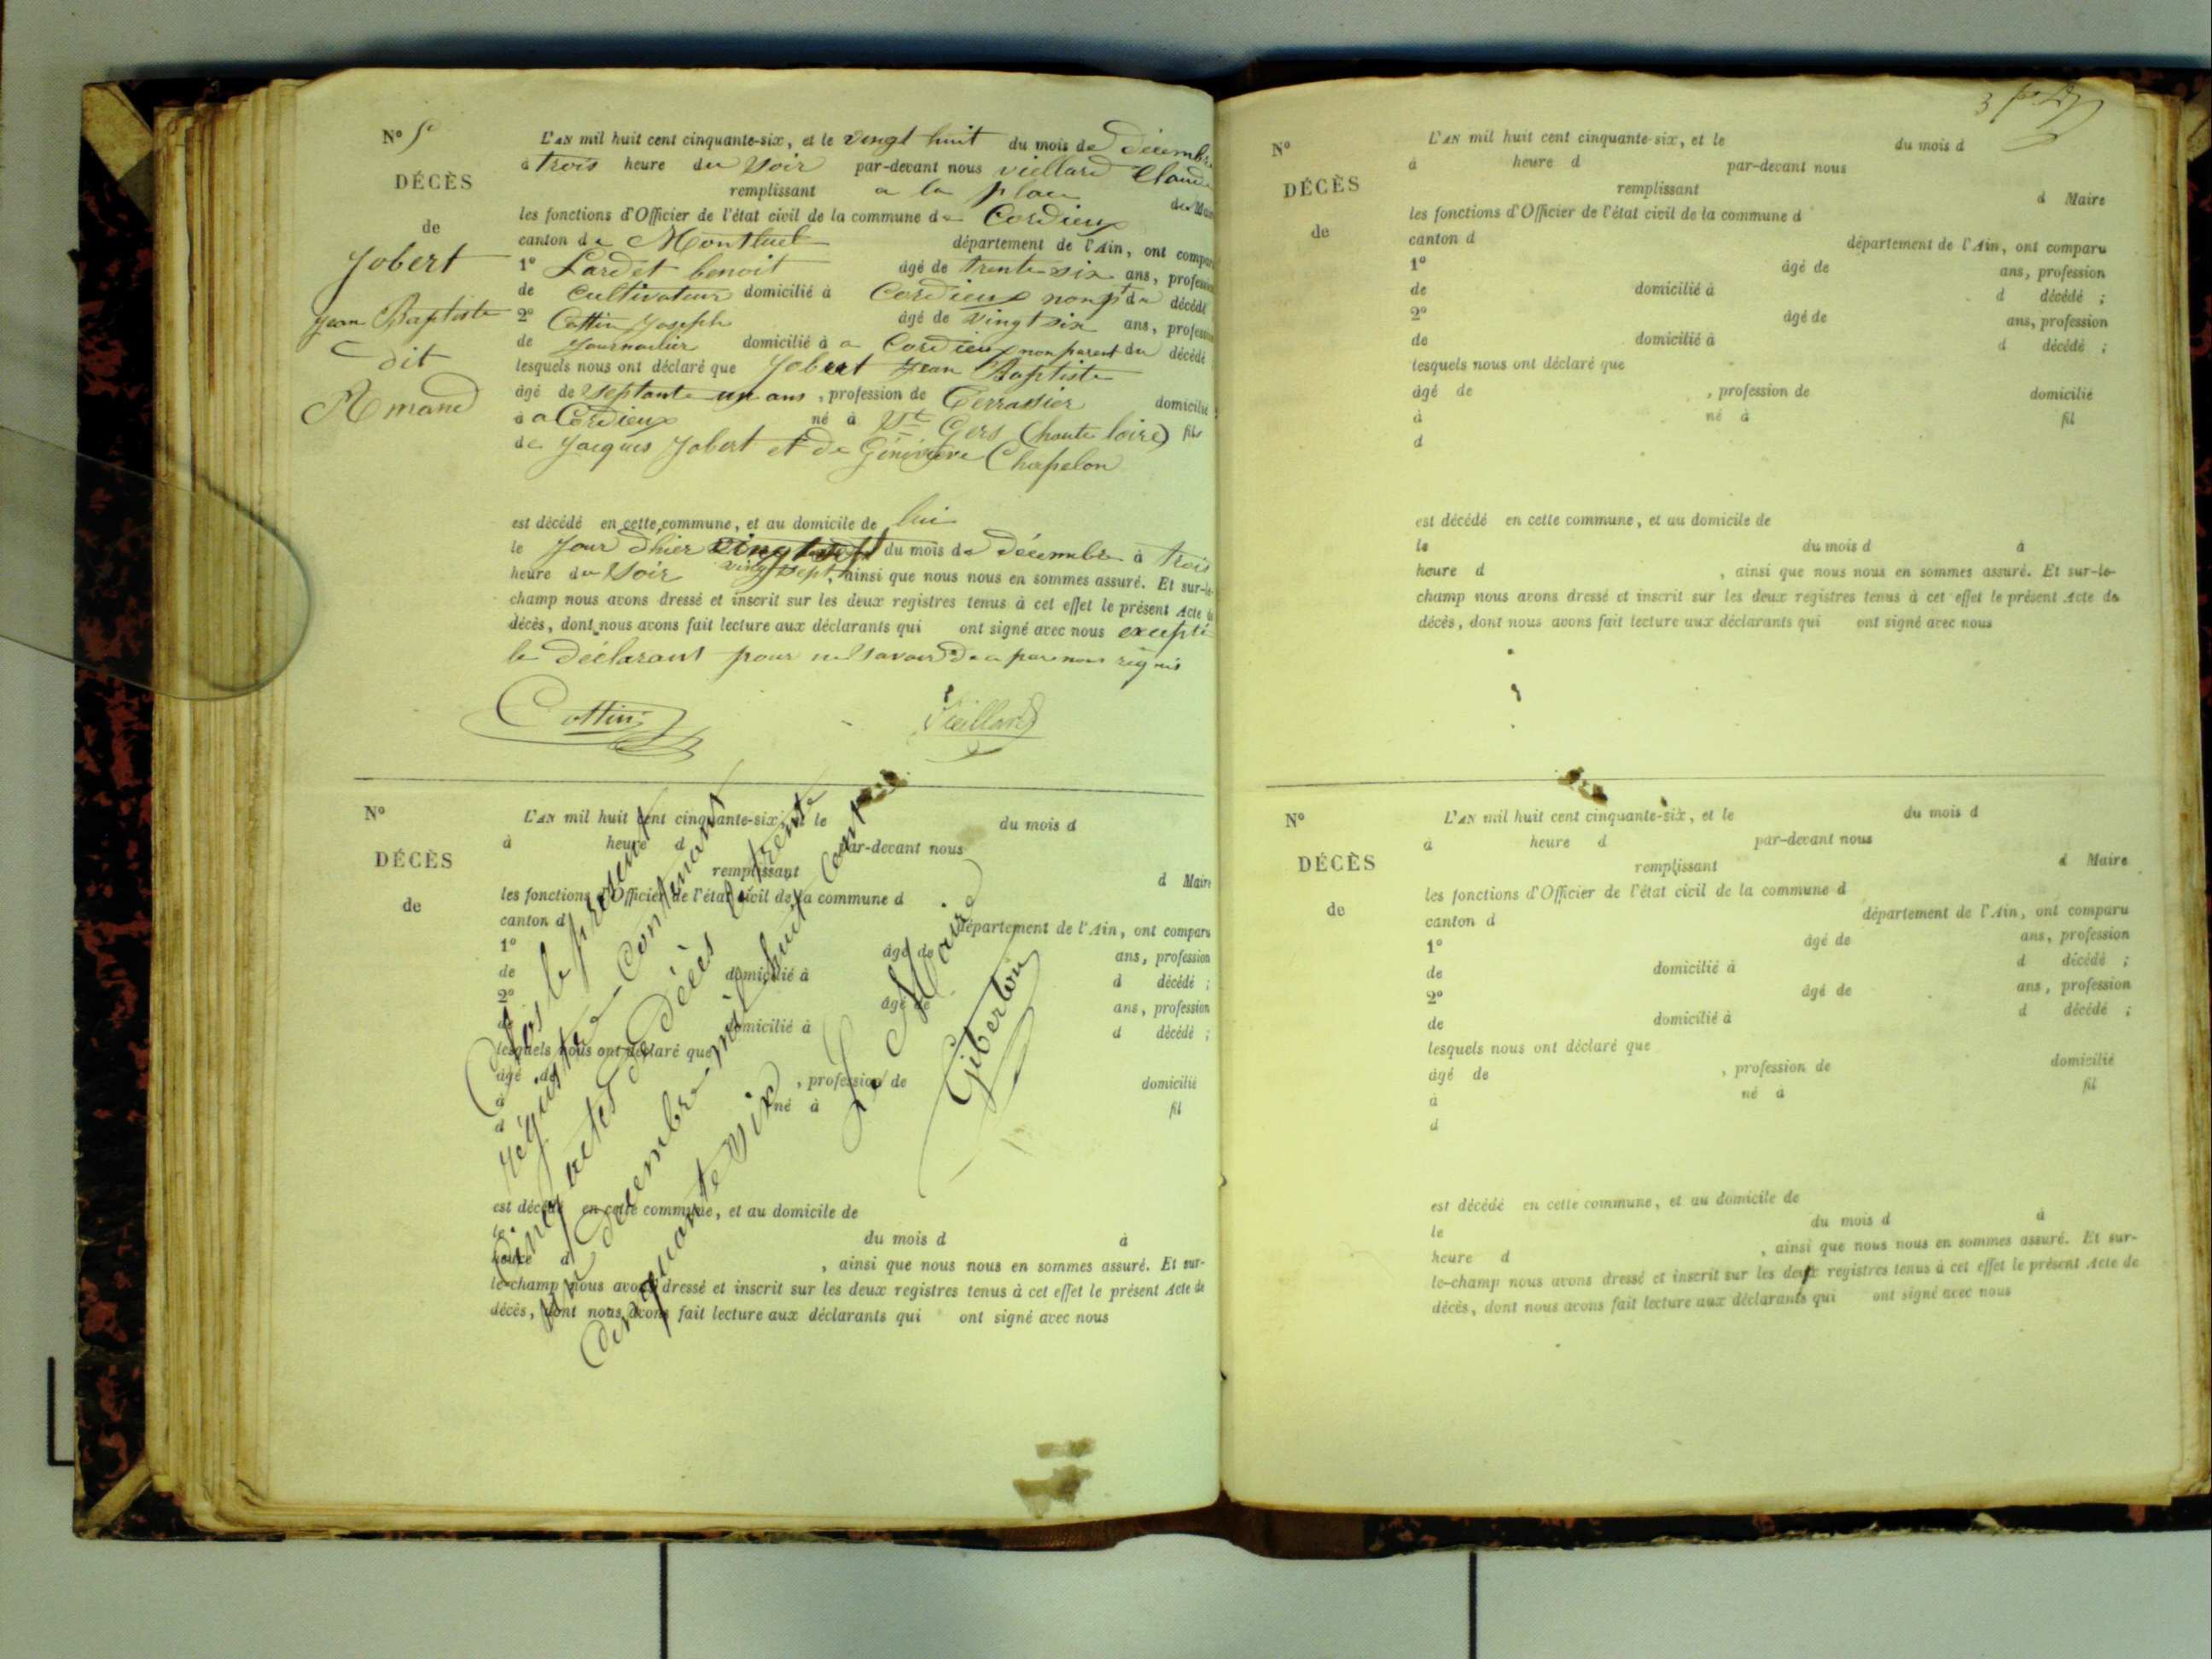 Nº 5
DÉCÈS
de
Jobert
Jean Baptiste
dit
Amand
L'AN mil huit cent cinquante-six, et le vingt huit du mois de décembre
à trois heure du soir par-devant nous vieillard Claude
remplissant a la place de Maire
les fonctions d'Officier de l'état civil de la commune de Cordieux
canton de Montluel département de l'Ain, ont comparu
1º Lardet benoit âgé de trente six ans, profession
de Cultivateur domicilié à Cordieux non pt du décédé
2º Cottin Joseph âgé de vingt six ans, profession
de Journalier domicilié à a Cordieux non parent du décédé
lesquels nous ont déclaré que Jobert Jean Baptiste
âgé de septante un ans, profession de Terrassier domicilié
à a Cordieux né à St Gers (haute loire) fils
de Jacques Jobert et de Génévieve Chapelon
est décédé en cette commune, et au domicile de lui
le jour d'hier du mois de décembre à trois
heure du soir vingt sept, ainsi que nous nous en sommes assuré. Et sur-le-
champ nous avons dressé et inscrit sur les deux registres tenus à cet effet le présent Acte de
décès, dont nous avons fait lecture aux déclarants qui ont signé avec nous excepté
le déclarant pour ne savoir de ce par nous requis
Cottin
Vieillard
Nº
DÉCÈS
de
L'AN mil huit cent cinquante-six, et le du mois d
à heure d par-devant nous
remplissant d Maire
les fonctions d'Officier de l'état civil de la commune d
canton d département de l'Ain, ont comparu
1º âgé de ans, profession
de domicilié à d décédé ;
2º âgé de ans, profession
de domicilié à d décédé ;
lesquels nous ont déclaré que
âgé de , profession de domicilié
à né à fil
d
est décédé en cette commune, et au domicile de
le du mois d à
heure d , ainsi que nous nous en sommes assuré. Et sur-
le-champ nous avons dressé et inscrit sur les deux registres tenus à cet effet le présent Acte de
décès, dont nous avons fait lecture aux déclarants qui ont signé avec nous
Clos le présent
régistre contenant
cinq actes de décès le trente
un décembre mil huit cent
cinquante six
Le Maire
Giberton
3
Nº
DÉCÈS
de
L'AN mil huit cent cinquante-six, et le du mois d
à heure d par-devant nous
remplissant d Maire
les fonctions d'Officier de l'état civil de la commune d
canton d département de l'Ain, ont comparu
1º âgé de ans, profession
de domicilié à d décédé ;
2º âgé de ans, profession
de domicilié à d décédé ;
lesquels nous ont déclaré que
âgé de , profession de domicilié
à né à fil
d
est décédé en cette commune, et au domicile de
le du mois d à
heure d , ainsi que nous nous en sommes assuré. Et sur-le-
champ nous avons dressé et inscrit sur les deux registres tenus à cet effet le présent Acte de
décès, dont nous avons fait lecture aux déclarants qui ont signé avec nous
Nº
DÉCÈS
de
L'AN mil huit cent cinquante-six, et le du mois d
à heure d par-devant nous
remplissant d Maire
les fonctions d'Officier de l'état civil de la commune d
canton d département de l'Ain, ont comparu
1º âgé de ans, profession
de domicilié à d décédé ;
2º âgé de ans, profession
de domicilié à d décédé ;
lesquels nous ont déclaré que
âgé de , profession de domicilié
à né à fil
d
est décédé en cette commune, et au domicile de
le du mois d à
heure d , ainsi que nous nous en sommes assuré. Et sur-
le-champ nous avons dressé et inscrit sur les deux registres tenus à cet effet le présent Acte de
décès, dont nous avons fait lecture aux déclarants qui ont signé avec nous